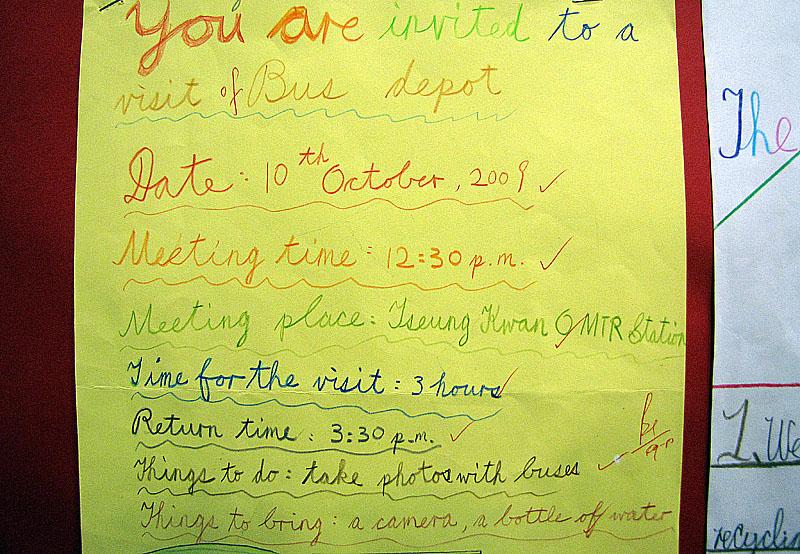 You are invited to a
visit of Bus depot
Date: 10th October, 2009
Meeting time: 12:30 p.m.
Meeting place: Tseung Kwan O MTR Station
Time for the visit: 3 hours
Return time: 3:30 p.m.
Things to do: take photos with buses
Things to bring: a camera, a bottle of water
The
1. We
recyclin